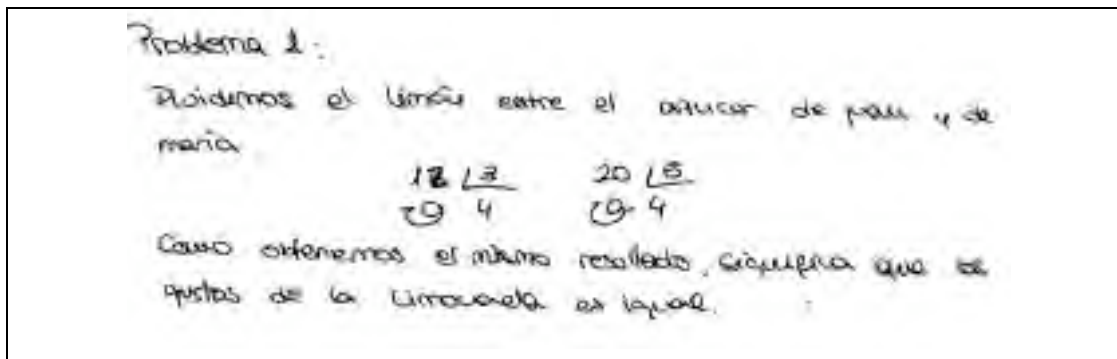 Problema 1:
Dividimos el limón entre el azucar de pau y de
maria
12 | 3 20 | 5
0 4 0 4
Como obtenemos el mismo resultado, significa que los
gustos de la Limonada es igual.